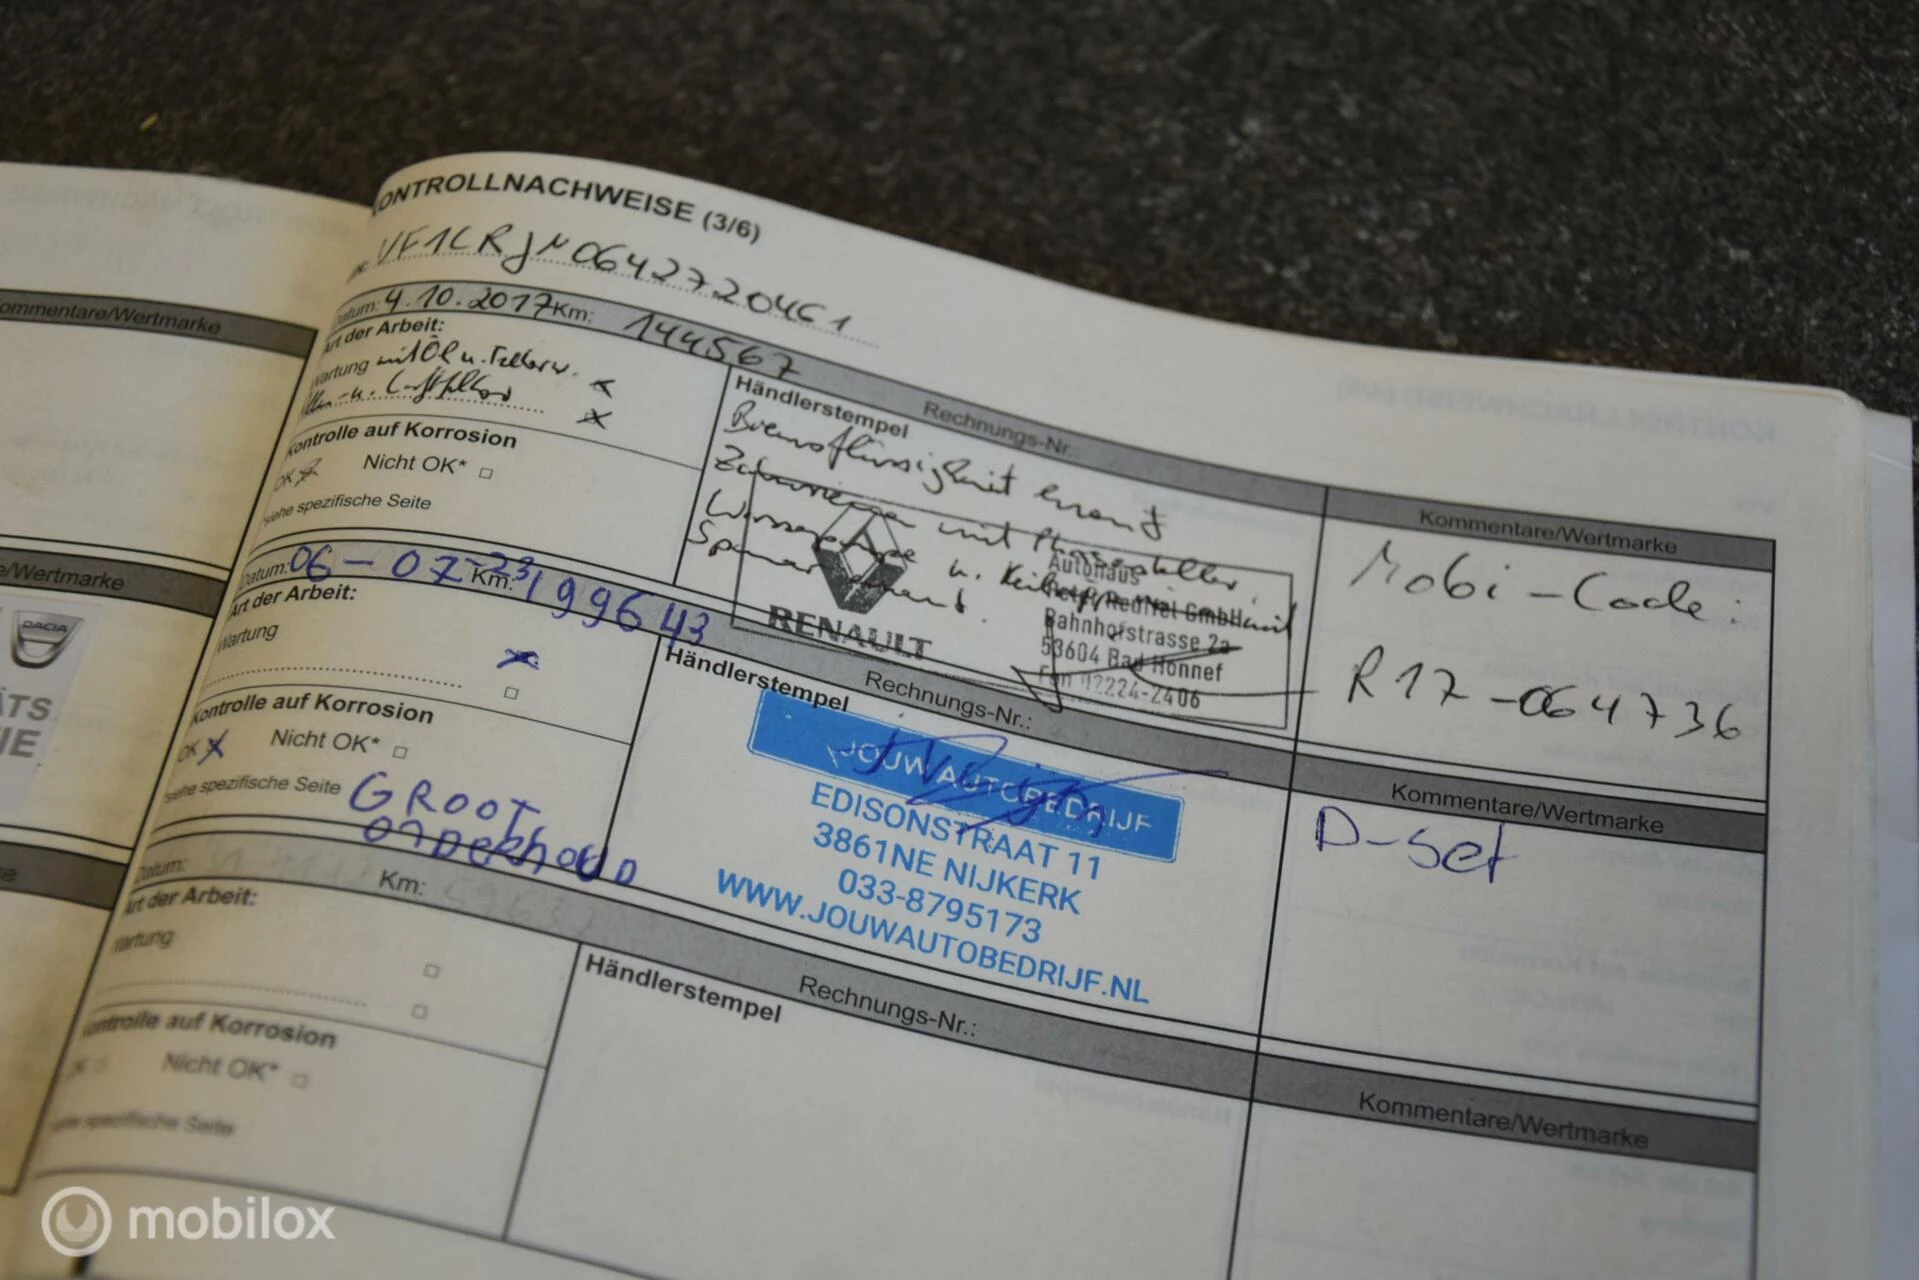 KONTROLLNACHWEISE (3/6)
VF1CRJN0642720461
Datum: 4.10.2017 Km: 144567
Art der Arbeit:
Wartung mit Öl u.
u. Luftfilter
Kontrolle auf Korrosion
OK Nicht OK*
siehe spezifische Seite
Rechnungs-Nr.:
Händlerstempel
Bremsflüssigkeit erneut
Zahnriemen mit Phasensteller,
Wasserpumpe u. Keilrippenriemen mit
Spanner erneut.
RENAULT
Autohaus
GmbH
Bahnhofstrasse 2a
53604 Bad Honnef
02224-2406
Kommentare/Wertmarke
Mobi-Code:
R17-064736
Kommentare/Wertmarke
e/Wertmarke
DACIA
ÄTS
IE
Datum: 06-07-23 Km: 199643
Art der Arbeit:
Wartung
Kontrolle auf Korrosion
OK Nicht OK*
siehe spezifische Seite
GROOT
onderhoud
Rechnungs-Nr.:
Händlerstempel
JOUW AUTOBEDRIJF
EDISONSTRAAT 11
3861NE NIJKERK
033-8795173
WWW.JOUWAUTOBEDRIJF.NL
Kommentare/Wertmarke
D-set
Datum: Km:
Art der Arbeit:
Wartung
Kontrolle auf Korrosion
OK Nicht OK*
siehe spezifische Seite
Rechnungs-Nr.:
Händlerstempel
Kommentare/Wertmarke
mobilox